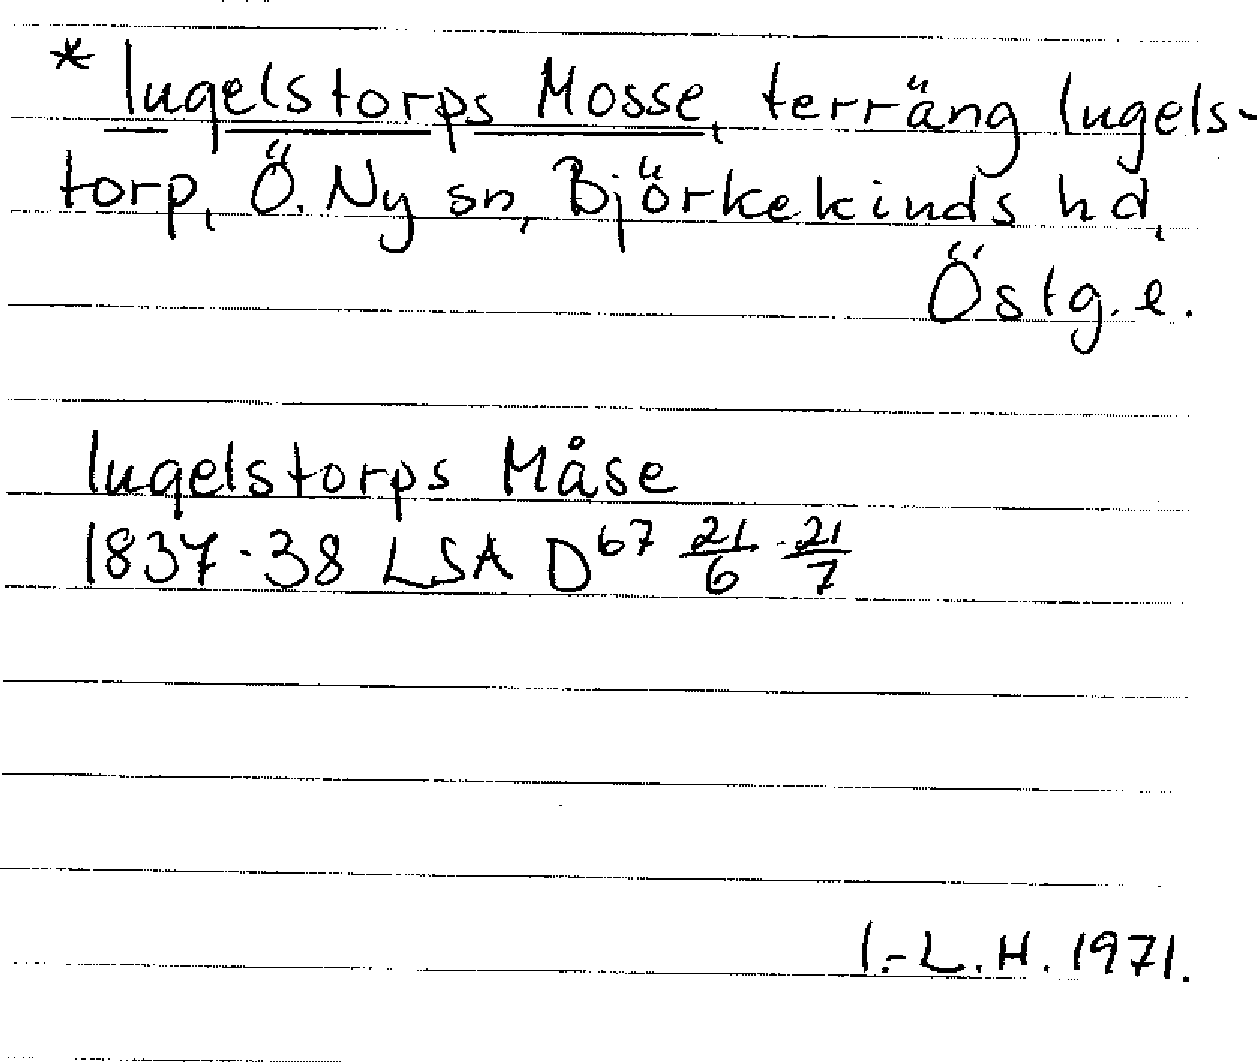 * Ingelstorps Mosse, terräng Ingels-
torp, Ö. Ny sn, Björkekinds hd,
Östg. l.
Ingelstorps Måse
1837-38 LSA D⁶⁷ 21/6 - 21/7
I.-L. H. 1971.